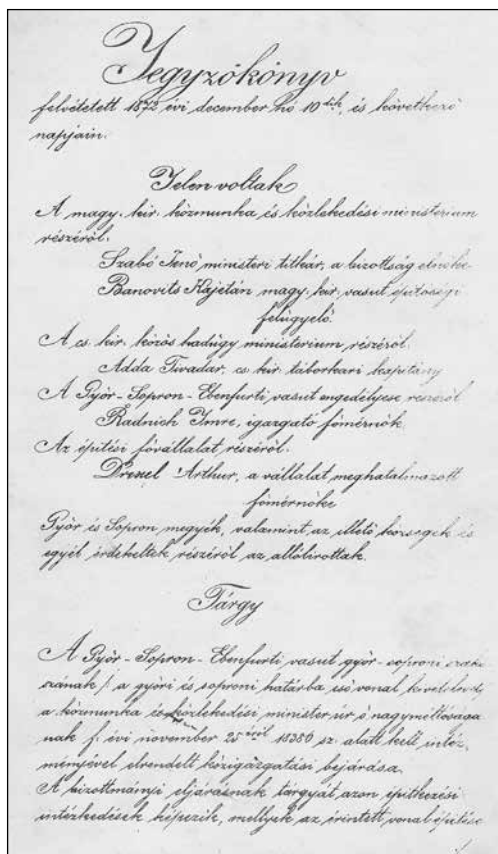 Jegyzőkönyv
felvétetett 1872 évi december hó 10dik, és következő
napjain.
Jelen voltak
A magy. kir. közmunka és közlekedési ministerium
részéről.
Szabó Jenő ministeri titkár, a bizottság elnöke
Banovits Kajetán magy. kir. vasut építészeti
felügyelő.
A cs. kir. közös hadügy ministerium részéről.
Adda Tivadar, cs. kir. táborkari kapitány
A Győr-Sopron-Ebenfurti vasut engedélyese részéről
Radnich Imre, igazgató főmérnök.
Az építési fővállalat részéről.
Drexel Arthur, a vállalat meghatalmazott
főmérnöke
Győr és Sopron megyék, valamint az illető községek és
egyéb érdekeltek részéről az allólirottak.
Tárgy
A Győr-Sopron-Ebenfurti vasut győr-soproni szaka
szának /: a győri és soproni határba eső vonal kivételével
a közmunka és közlekedési minister úr ő nagyméltósága
nak f. évi november 25éről 18386 sz. alatt kelt intéz
ményével elrendelt közigazgatási bejárása.
A bizottmányi eljárásnak tárgyát azon építkezési
intézkedések képezik, mellyek az érintett vonal építése